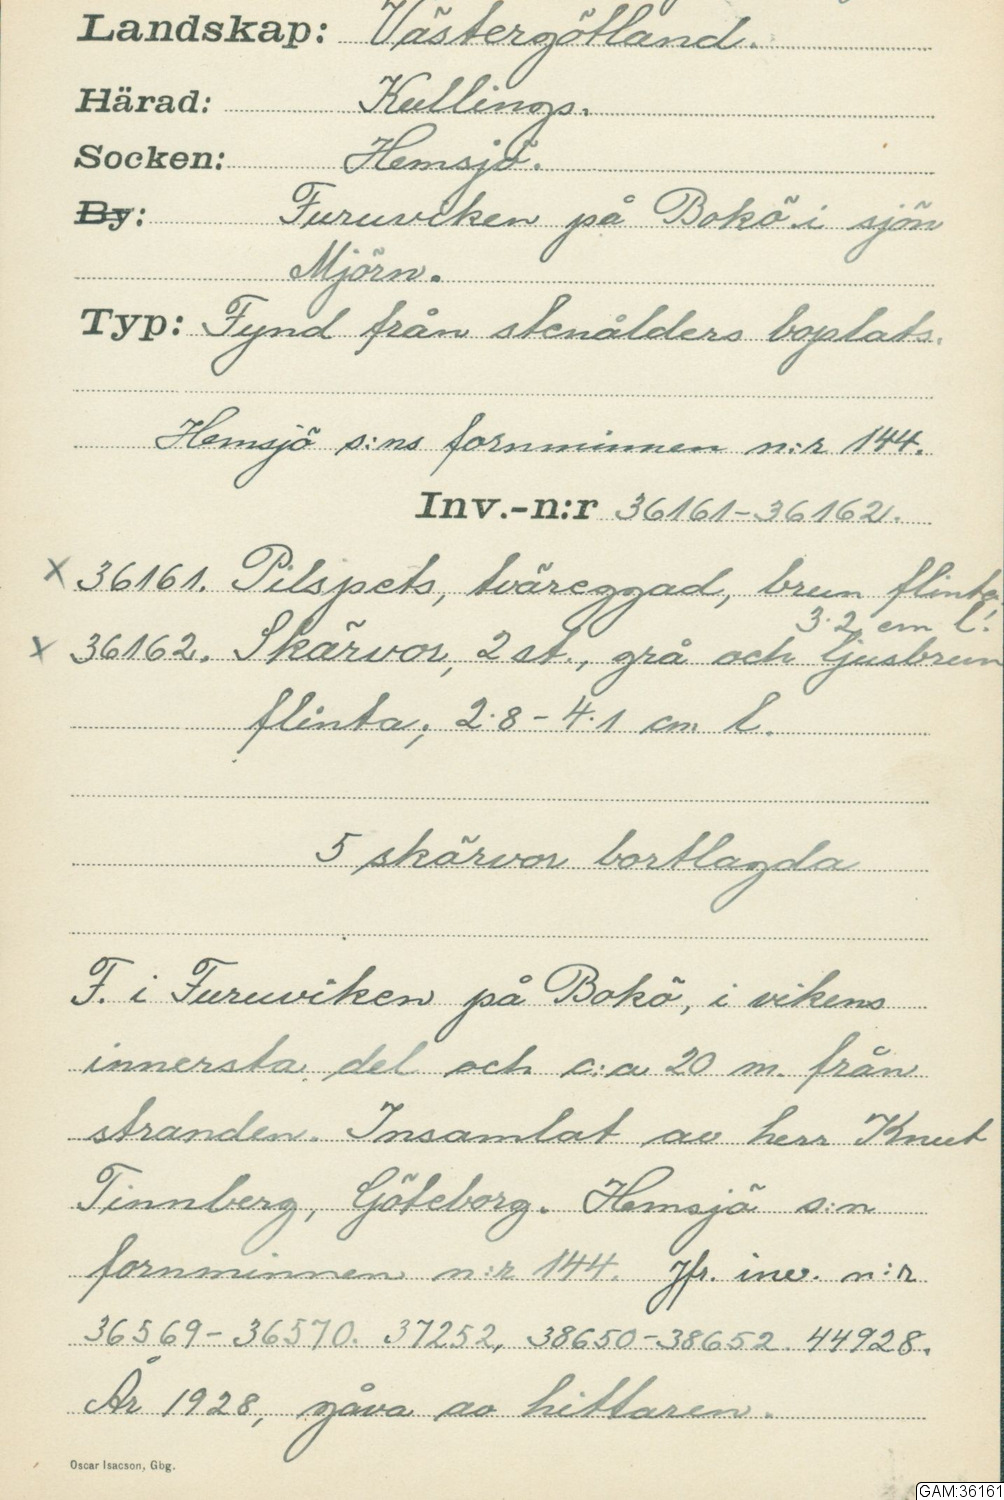 Landskap: Västergötland.
Härad: Kullings.
Socken: Hemsjö.
By: Furuviken på Bokö i sjön
Mjörn.
Typ: Fynd från stenålders boplats.
Hemsjö s:ns fornminnen n:r 144.
Inv.-n:r 36161-36162.
x 36161. Pilspets, tväreggad, brun flinta;
3·2 cm l.
x 36162. Skärvor, 2 st., grå och ljusbrun
flinta; 2·8-4·1 cm l.
5 skärvor bortlagda
F. i Furuviken på Bokö, i vikens
innersta del och c:a 20 m. från
stranden. Insamlat av herr Knut
Tinnberg, Göteborg. Hemsjö s:n
fornminnen n:r 144. Jfr. inv. n:r
36569-36570. 37252, 38650-38652. 44928.
År 1928, gåva av hittaren.
Oscar Isacson, Gbg.
GAM:36161